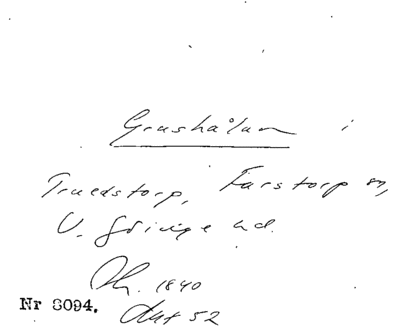 Grushålan i
Truedstorp, Farstorp sn,
V. Göinge hd.
1840
Nr 8094. Aut 52